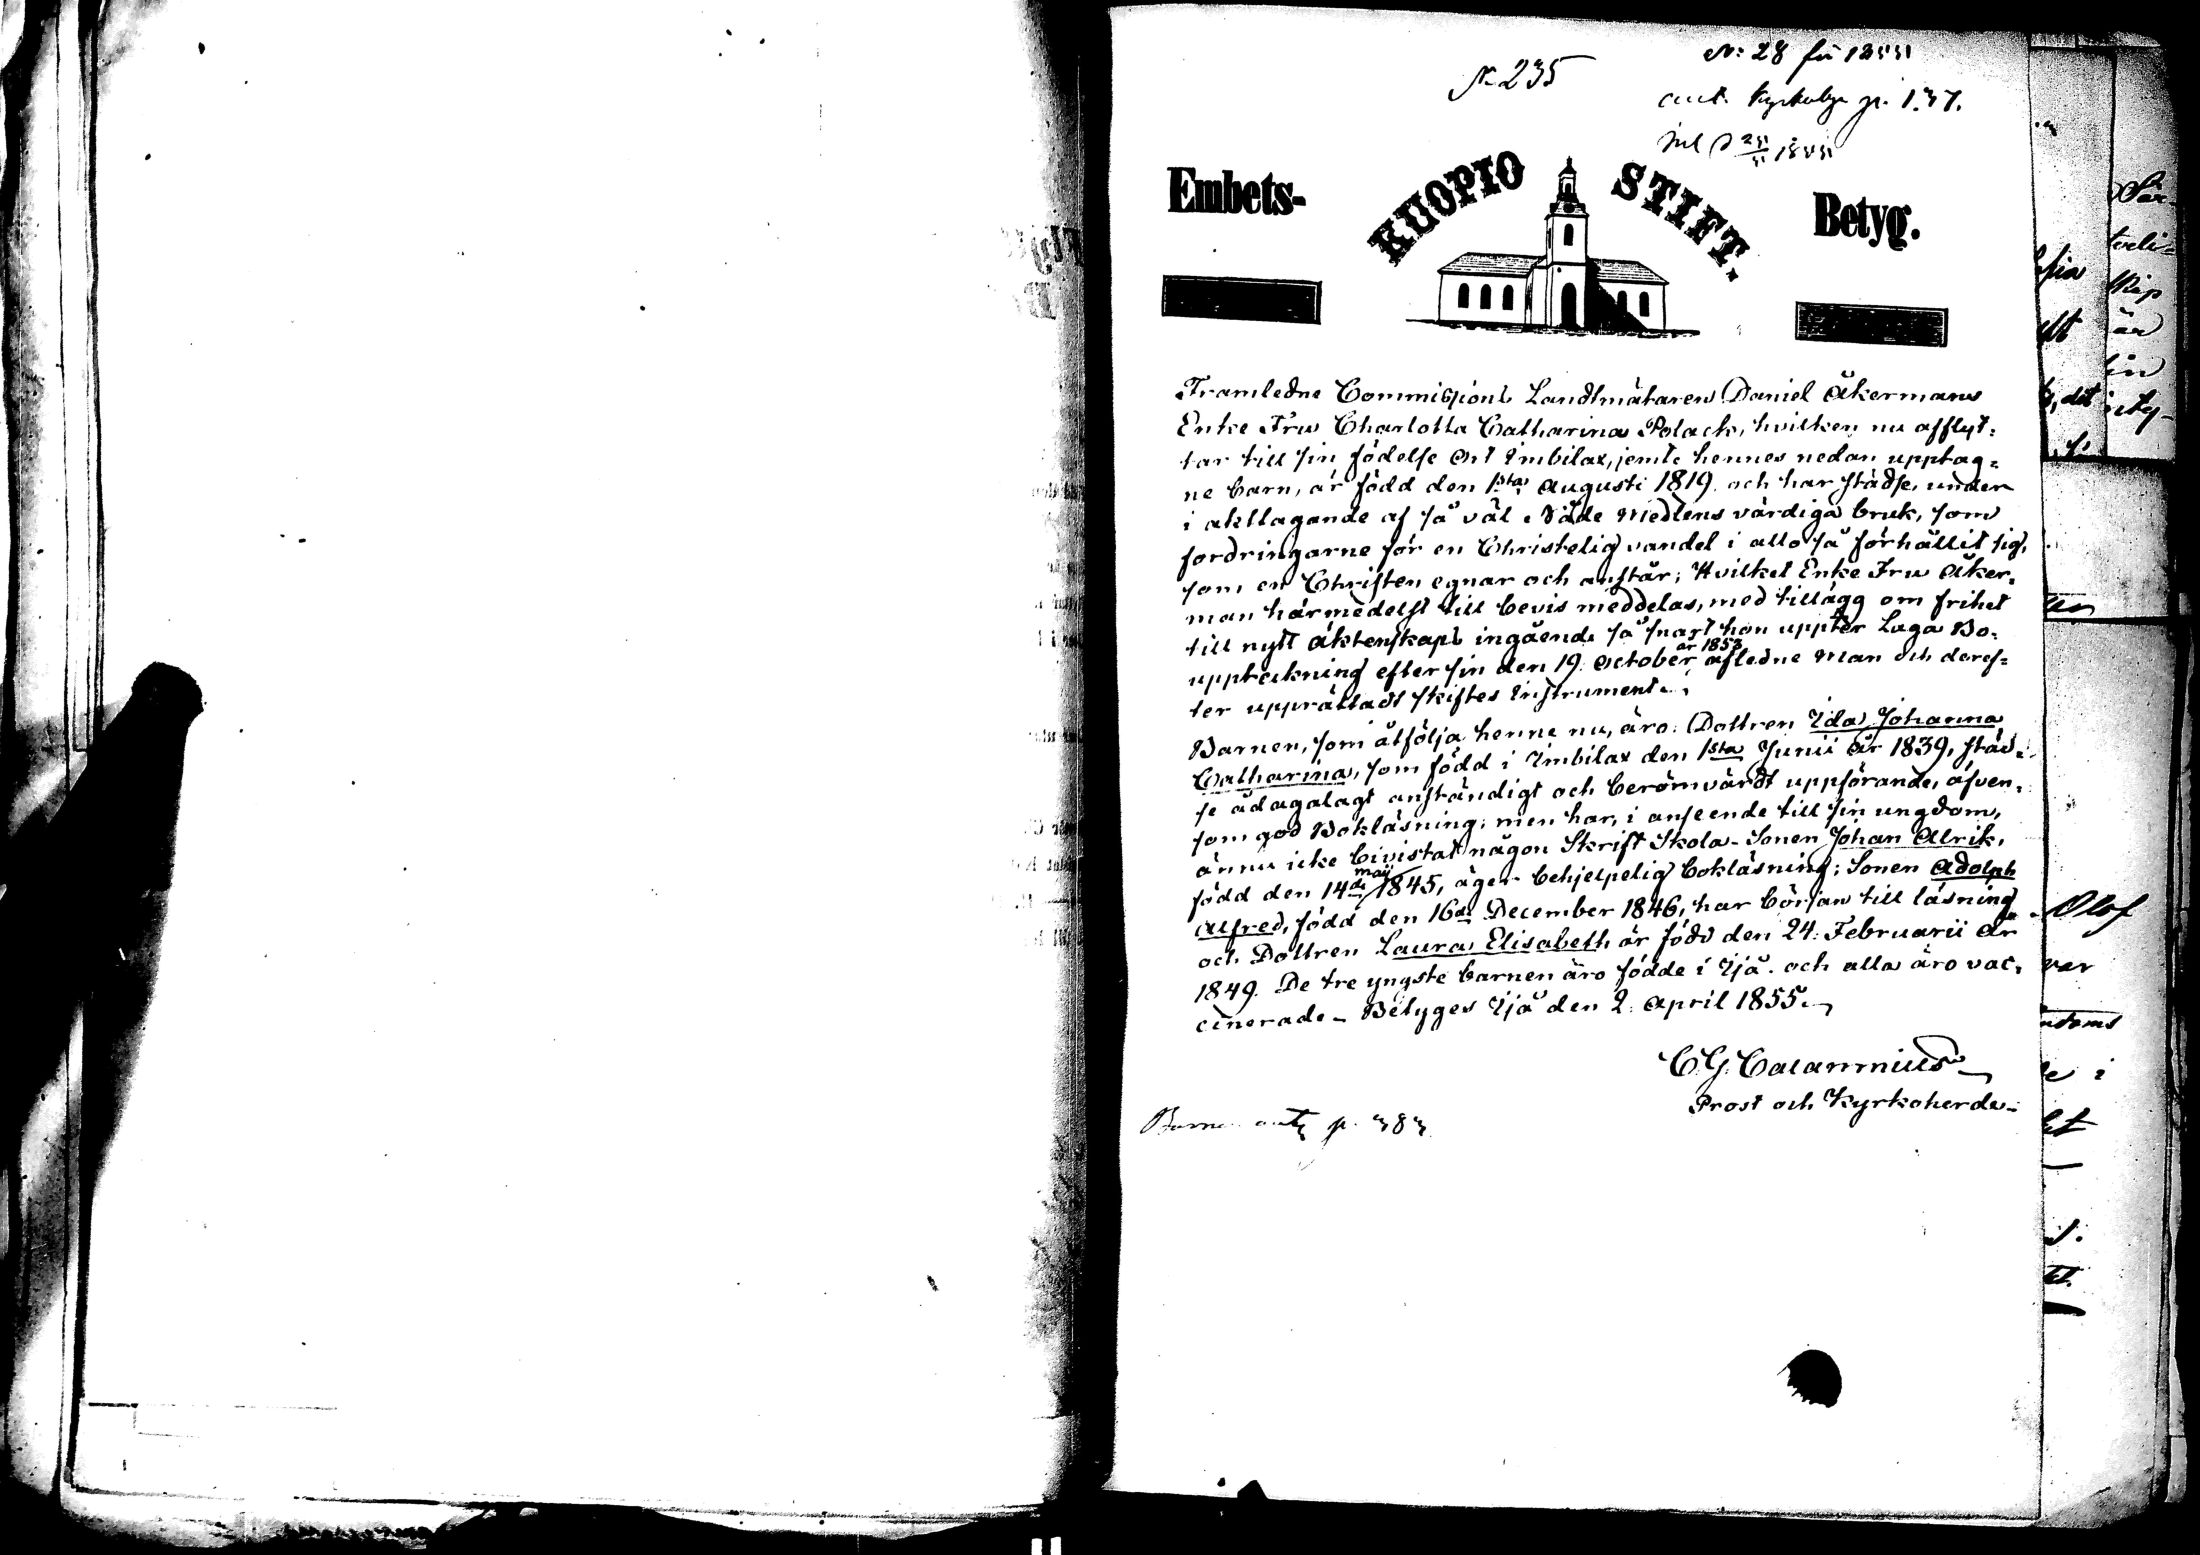 N 235
N: 28 för 1855
ant. kyrkoby p. 137.
Embets-
KUOPIO STIFT.
Betyg.
Framledne Commissions Landtmätaren Daniel Åkermans
Enke Fru Charlotta Catharina Polack, hvilken nu afflyt-
tar till sin födelse Ort Imbilax, jemte hennes nedan upptag-
ne barn, är född den 1sta Augusti 1819. och har städse, under
i akttagande af så väl Nåde Medlens värdiga bruk, som
fordringarne för en Christelig vandel i allo så förhållit sig,
som en Christen egnar och anstår; Hvilket Enke Fru Åker-
man härmedelst till bevis meddelas, med tillägg om frihet
till nytt äktenskaps ingående så snart hon uppter Laga Bo-
uppteckning efter sin den 19 October år 1853 afledne Man och deref-
ter upprättadt skiftes Instrument.
Barnen, som åtfölja henne nu, äro: Dottren Ida Johanna
Catharina, som född i Imbilax den 1sta Junii år 1839, städ-
se ådagalagt anständigt och berömvärdt uppförande, äfven-
som god Bokläsning; men har, i anseende till sin ungdom,
ännu icke bivistat någon Skrift Skola - Sonen Johan Alrik,
född den 14de maij 1845, äger behjelpelig bokläsning; Sonen Adolph
Alfred, född den 16de December 1846, har början till läsning
och Dottren Laura Elisabeth är född den 24. Februarii år
1849. De tre yngste barnen äro födde i Ijå. och alla äro vac-
cinerade - Betyges Ijå den 2. April 1855.
C. G. Calamnius
Prost och Kyrkoherde
Barnen p. 383